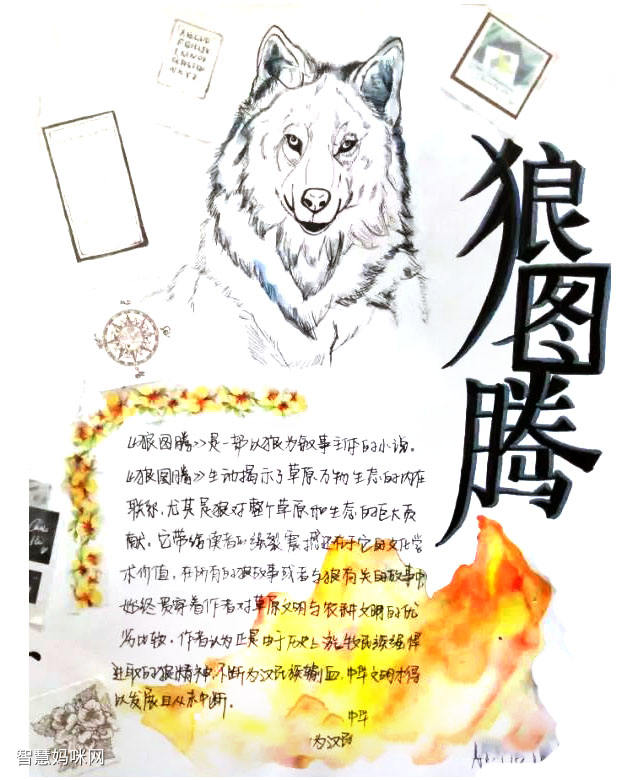 狼图腾
《狼图腾》是一部以狼为叙事主体的小说。
《狼图腾》生动揭示了草原万物生态的内在
联系,尤其是狼对整个草原和生态的巨大贡
献。它带给读者的 震撼还有于它的文化学
术价值,在所有的狼故事或者与狼有关的故事中
始终贯穿着作者对草原文明与农耕文明的优
劣比较,作者认为正是由于历史上游牧民族强悍
进取的狼精神,不断为汉民族输血,中华文明才得
以发展且从未中断。
中华
为汉民
智慧妈咪网